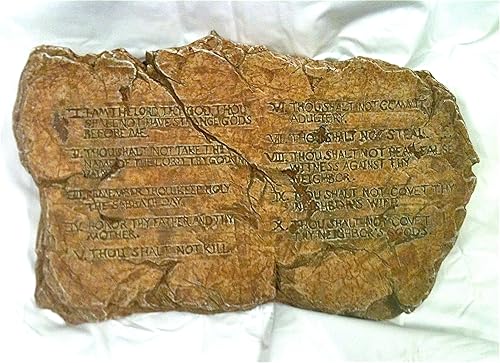 I. I AM THE LORD THY GOD THOU
SHALT NOT HAVE STRANGE GODS
BEFORE ME.
II. THOU SHALT NOT TAKE THE
NAME OF THE LORD THY GOD IN
VAIN.
III. REMEMBER THOU KEEP HOLY
THE SABBATH DAY.
IV. HONOR THY FATHER AND THY
MOTHER.
V. THOU SHALT NOT KILL.
VI. THOU SHALT NOT COMMIT
ADULTERY.
VII. THOU SHALT NOT STEAL.
VIII. THOU SHALT NOT BEAR FALSE
WITNESS AGAINST THY
NEIGHBOR.
IX. THOU SHALT NOT COVET THY
NEIGHBOR'S WIFE.
X. THOU SHALT NOT COVET
THY NEIGHBOR'S GOODS.